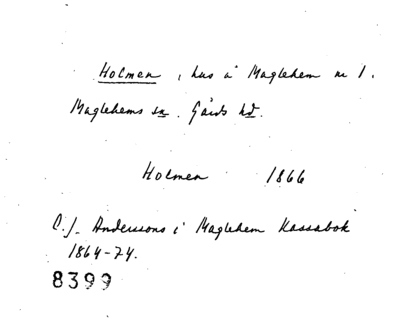 Holmen, hus å Maglehem nr 1.
Maglehems sn. Gärds hd.
Holmen 1866
C.J. Anderssons i Maglehem Kassabok
1864-74.
8399